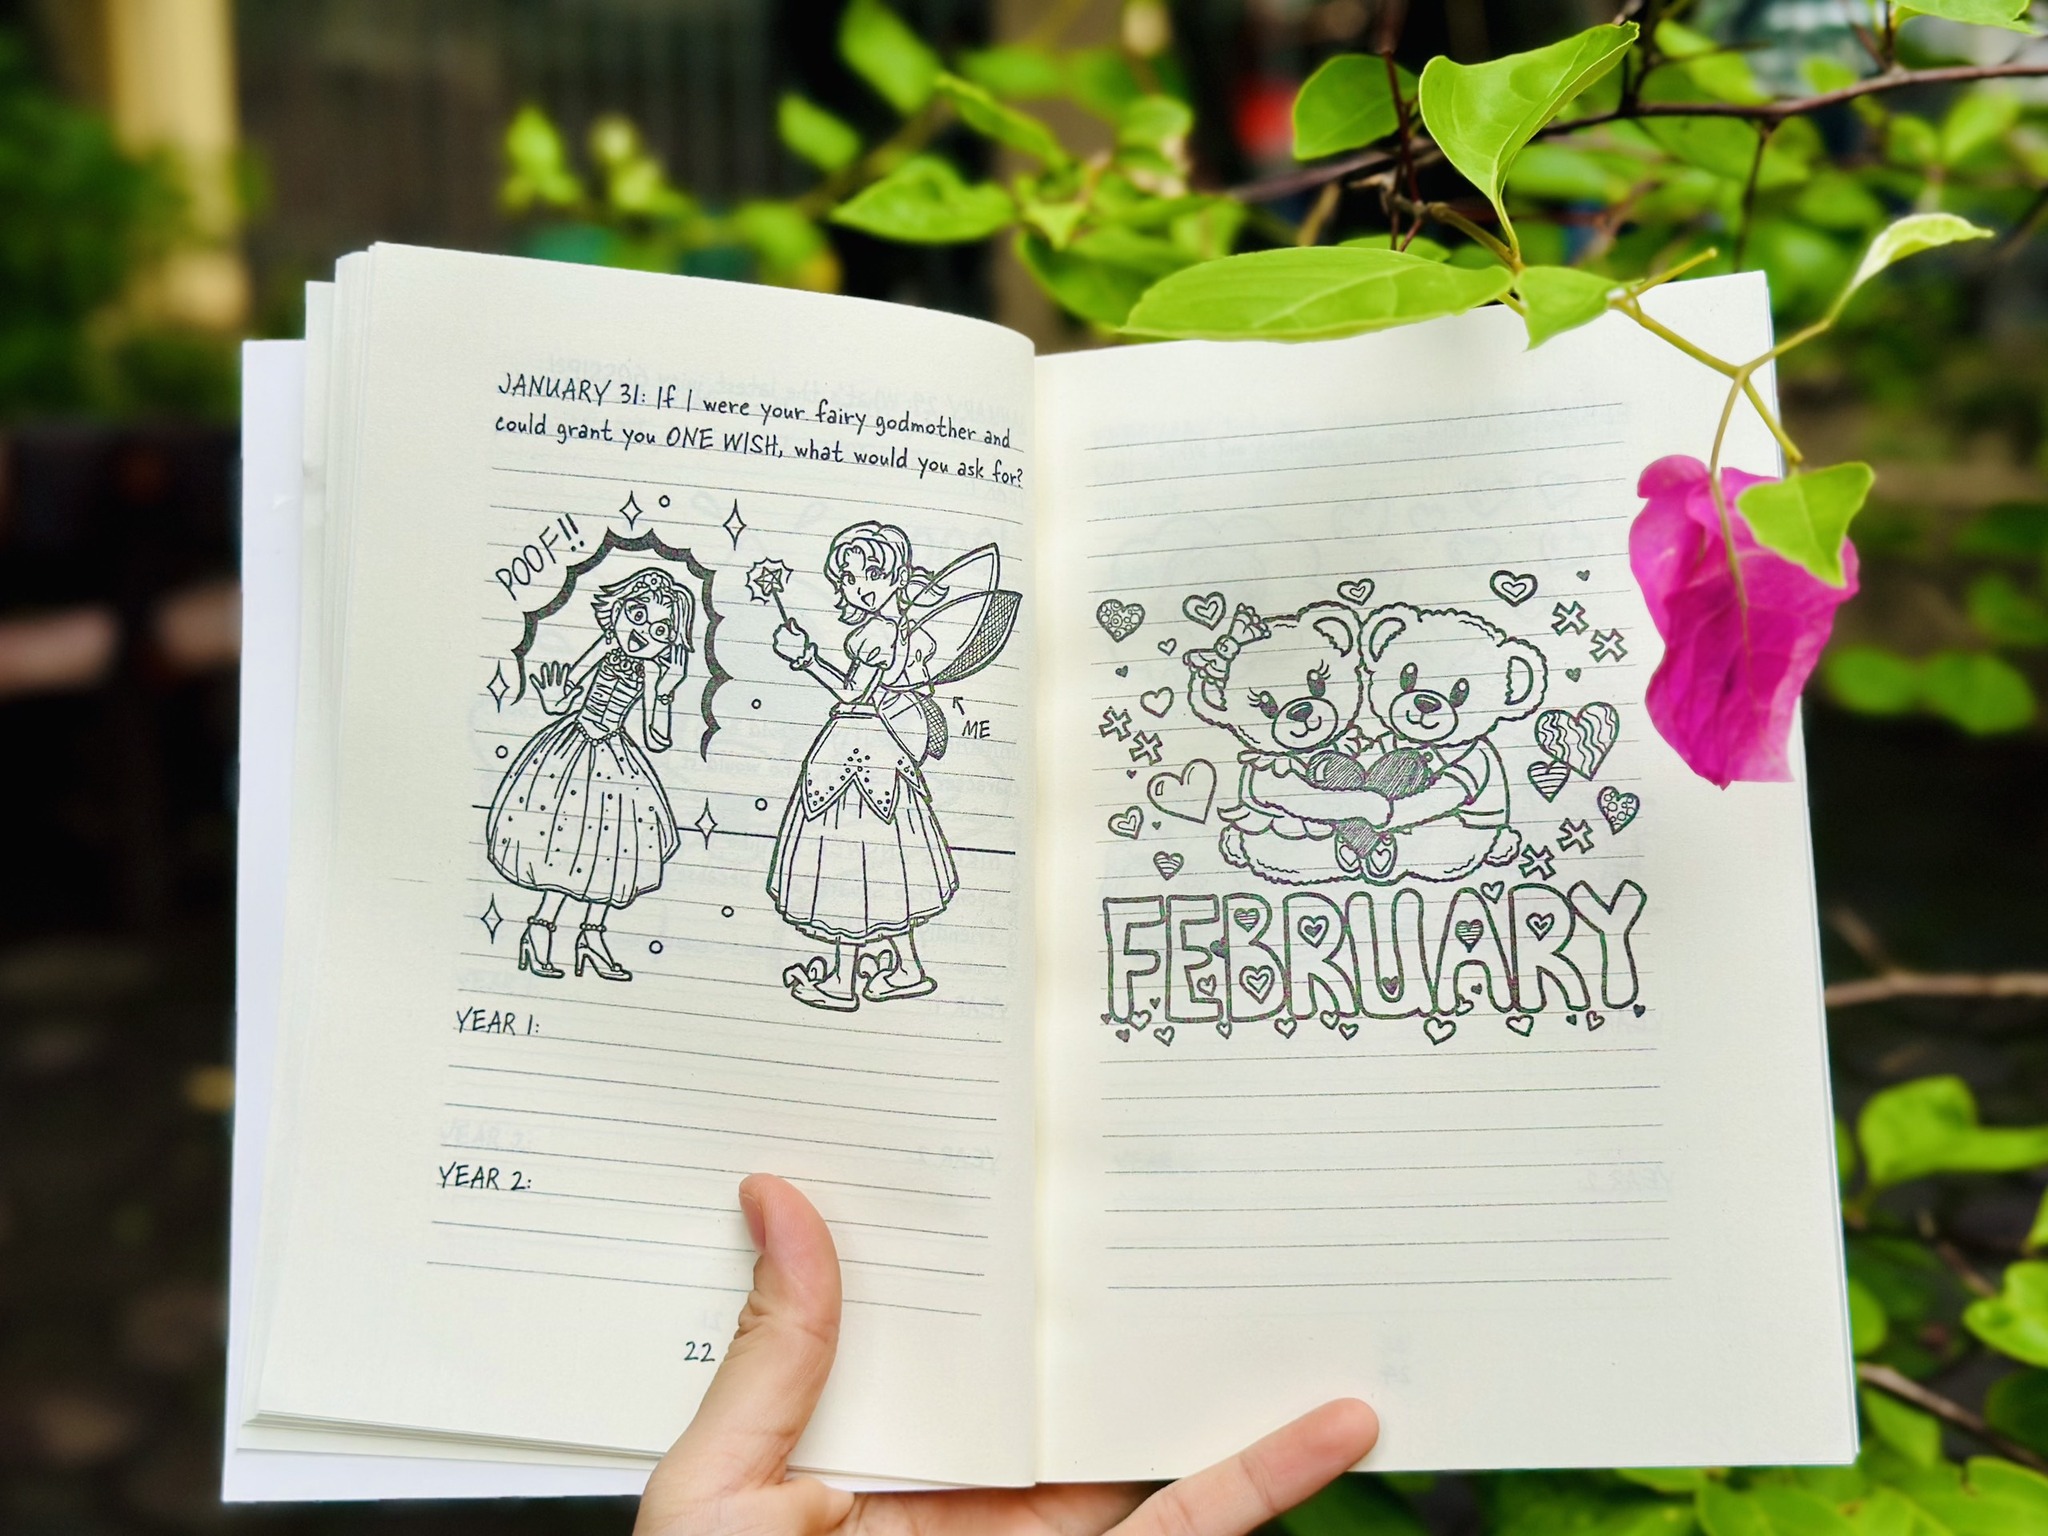 JANUARY 31: If I were your fairy godmother and
could grant you ONE WISH, what would you ask for?
POOF!!
ME
YEAR 1:
YEAR 2:
22
FEBRUARY